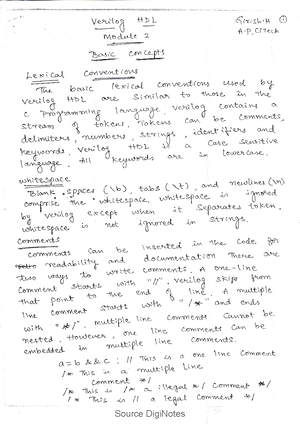 Verilog HDL
Girish.H
A.P, CITech
Module 2
Basic Concepts
Lexical Conventions
The basic lexical conventions used by
Verilog HDL are similar to those in the
C programming language. Verilog contains a
stream of tokens. Tokens can be comments,
delimiters, numbers, strings, identifiers and
keywords. Verilog HDL is a case sensitive
language. All keywords are in lowercase.
whitespace
Blank spaces (\b), tabs (\t), and newlines (\n)
comprise the whitespace. whitespace is ignored
by verilog except when it separates token.
whitespace is not ignored in strings.
Comments
comments can be inserted in the code for
readability and documentation There are
two ways to write comments. A one-line
comment starts with "//". verilog skips from
that point to the end of line. A multiple
line comment starts with "/*" and ends
with "*/". multiple line comments cannot be
nested. However, one line comments can be
embedded in multiple line comments.
a = b && c ; // This is a one line comment
/* This is a multiple line
comment */
/* This is /* a illegal */ comment */
/* This is // a legal comment */
Source DigiNotes